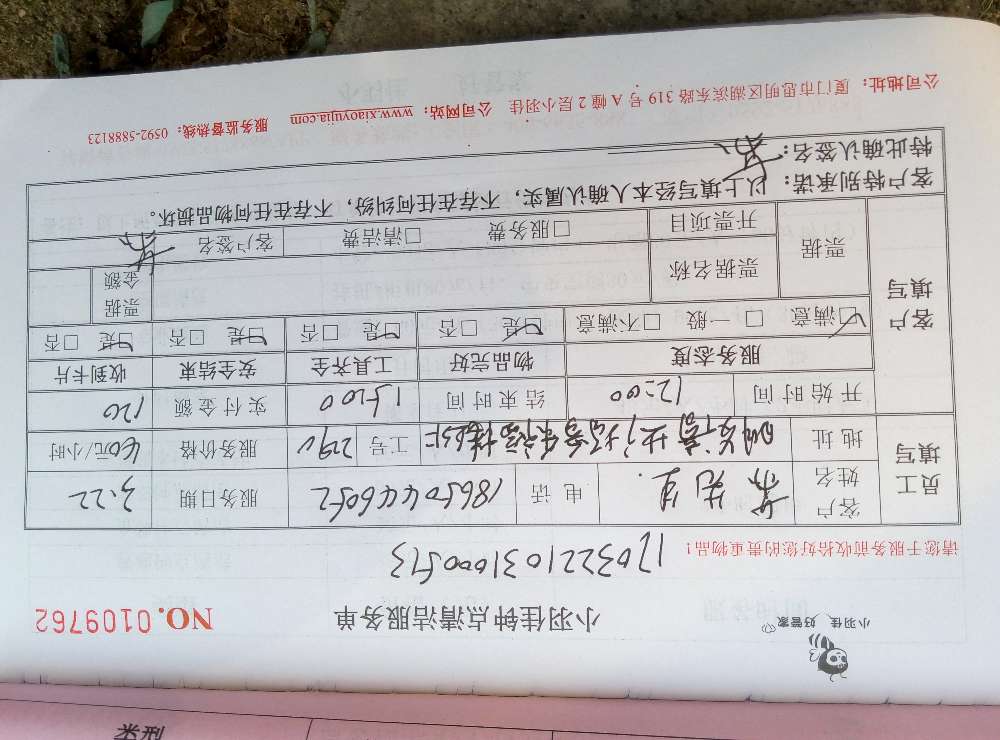 小羽佳 好管家
小羽佳钟点清洁服务单
NO. 0109762
1703221031000573
请您于服务前收好您的贵重物品!
员工填写
客户姓名 先生 电话 18650446052 服务日期 3.22
地址 工号 2910 服务价格 40元/小时
客户填写
开始时间 12:00 结束时间 15:00 实付金额 120
服务态度 物品完好 工具齐全 安全结束 收到卡片
☑满意 □一般 □不满意 ☑是 □否 ☑是 □否 ☑是 □否 ☑是 □否
票据 票据名称 票据金额
开票项目 □服务费 □清洁费 客户签名
客户特别承诺: 以上填写经本人确认属实,不存在任何纠纷,不存在任何物品损坏。
特此确认签名:
公司地址: 厦门市思明区湖滨东路 319 号 A 幢 2 层小羽佳 公司网站: www.xiaoyujia.com 服务监督热线: 0592-5888123
类型